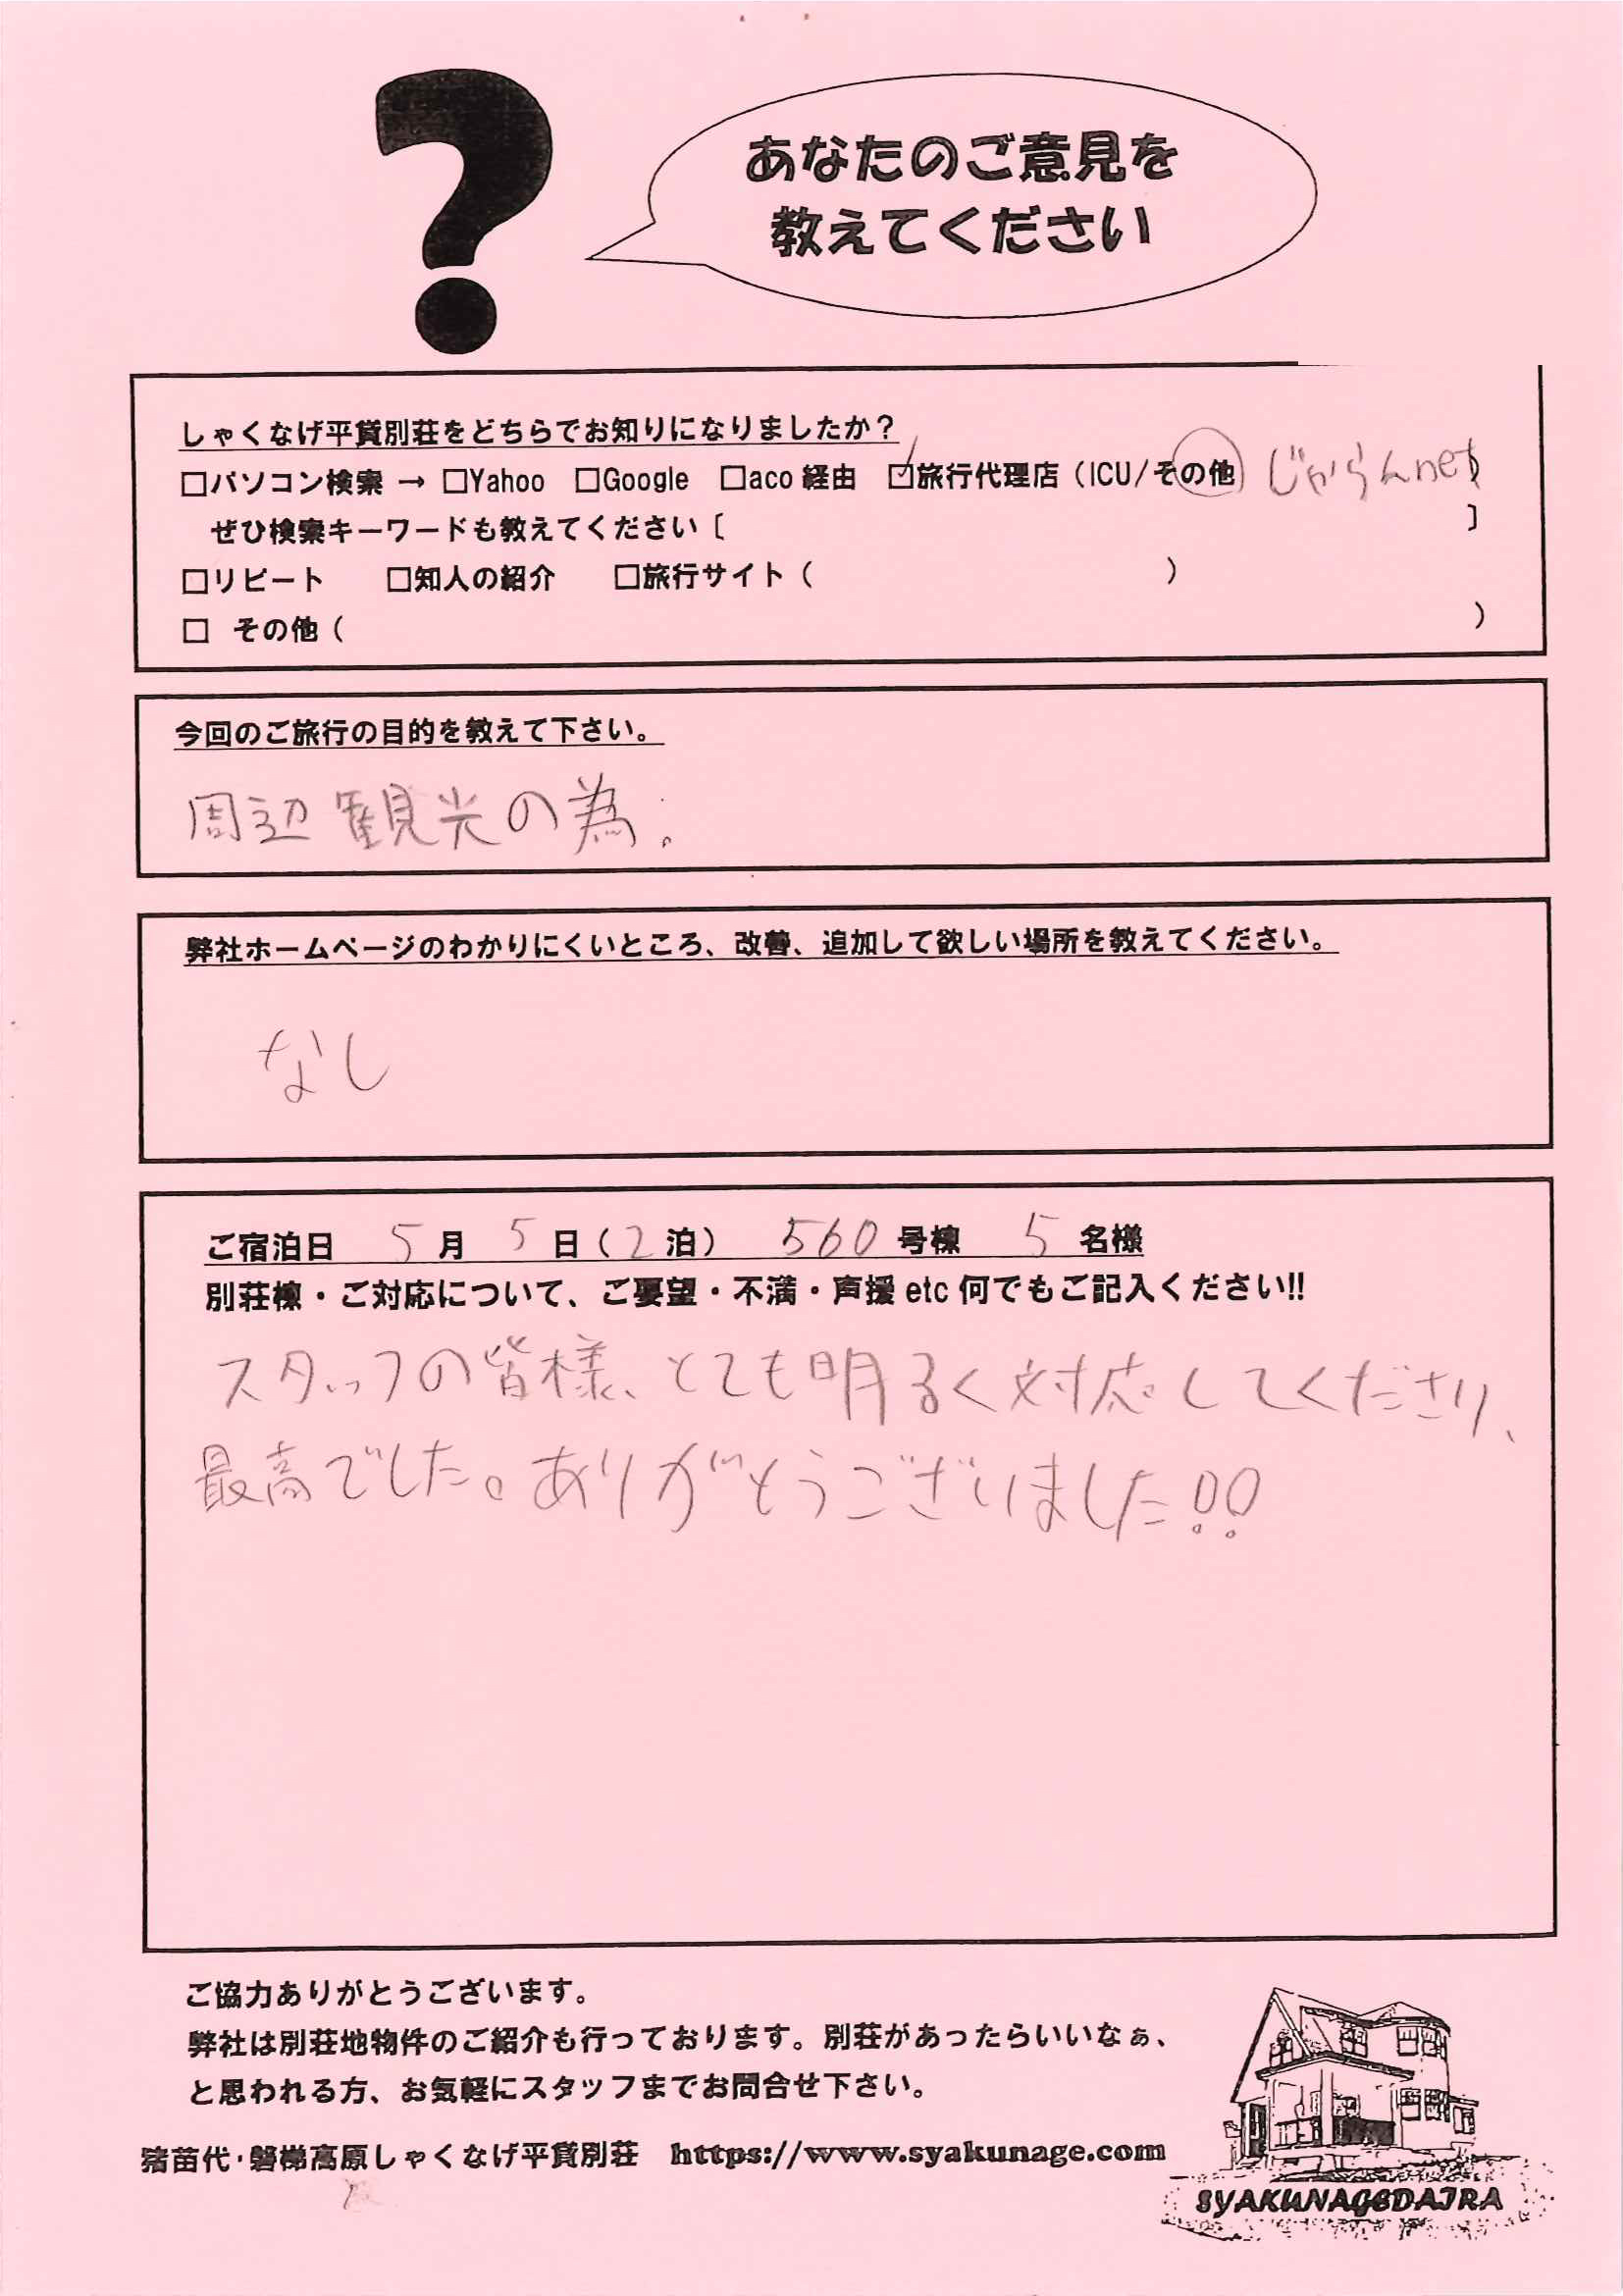 ?
あなたのご意見を
教えてください
しゃくなげ平貸別荘をどちらでお知りになりましたか？
□パソコン検索 → □Yahoo □Google □aco 経由 ☑旅行代理店（ICU/その他 じゃらんnet）
ぜひ検索キーワードも教えてください〔 〕
□リピート □知人の紹介 □旅行サイト（ ）
□ その他（ ）
今回のご旅行の目的を教えて下さい。
周辺観光の為。
弊社ホームページのわかりにくいところ、改善、追加して欲しい場所を教えてください。
なし
ご宿泊日 5月 5日（2泊） 560号棟 5名様
別荘棟・ご対応について、ご要望・不満・声援 etc 何でもご記入ください!!
スタッフの皆様、とても明るく対応してくださり、
最高でした。ありがとうございました!!
ご協力ありがとうございます。
弊社は別荘地物件のご紹介も行っております。別荘があったらいいなぁ、
と思われる方、お気軽にスタッフまでお問合せ下さい。
猪苗代・磐梯高原しゃくなげ平貸別荘 https://www.syakunage.com
SYAKUNAGEDAIRA